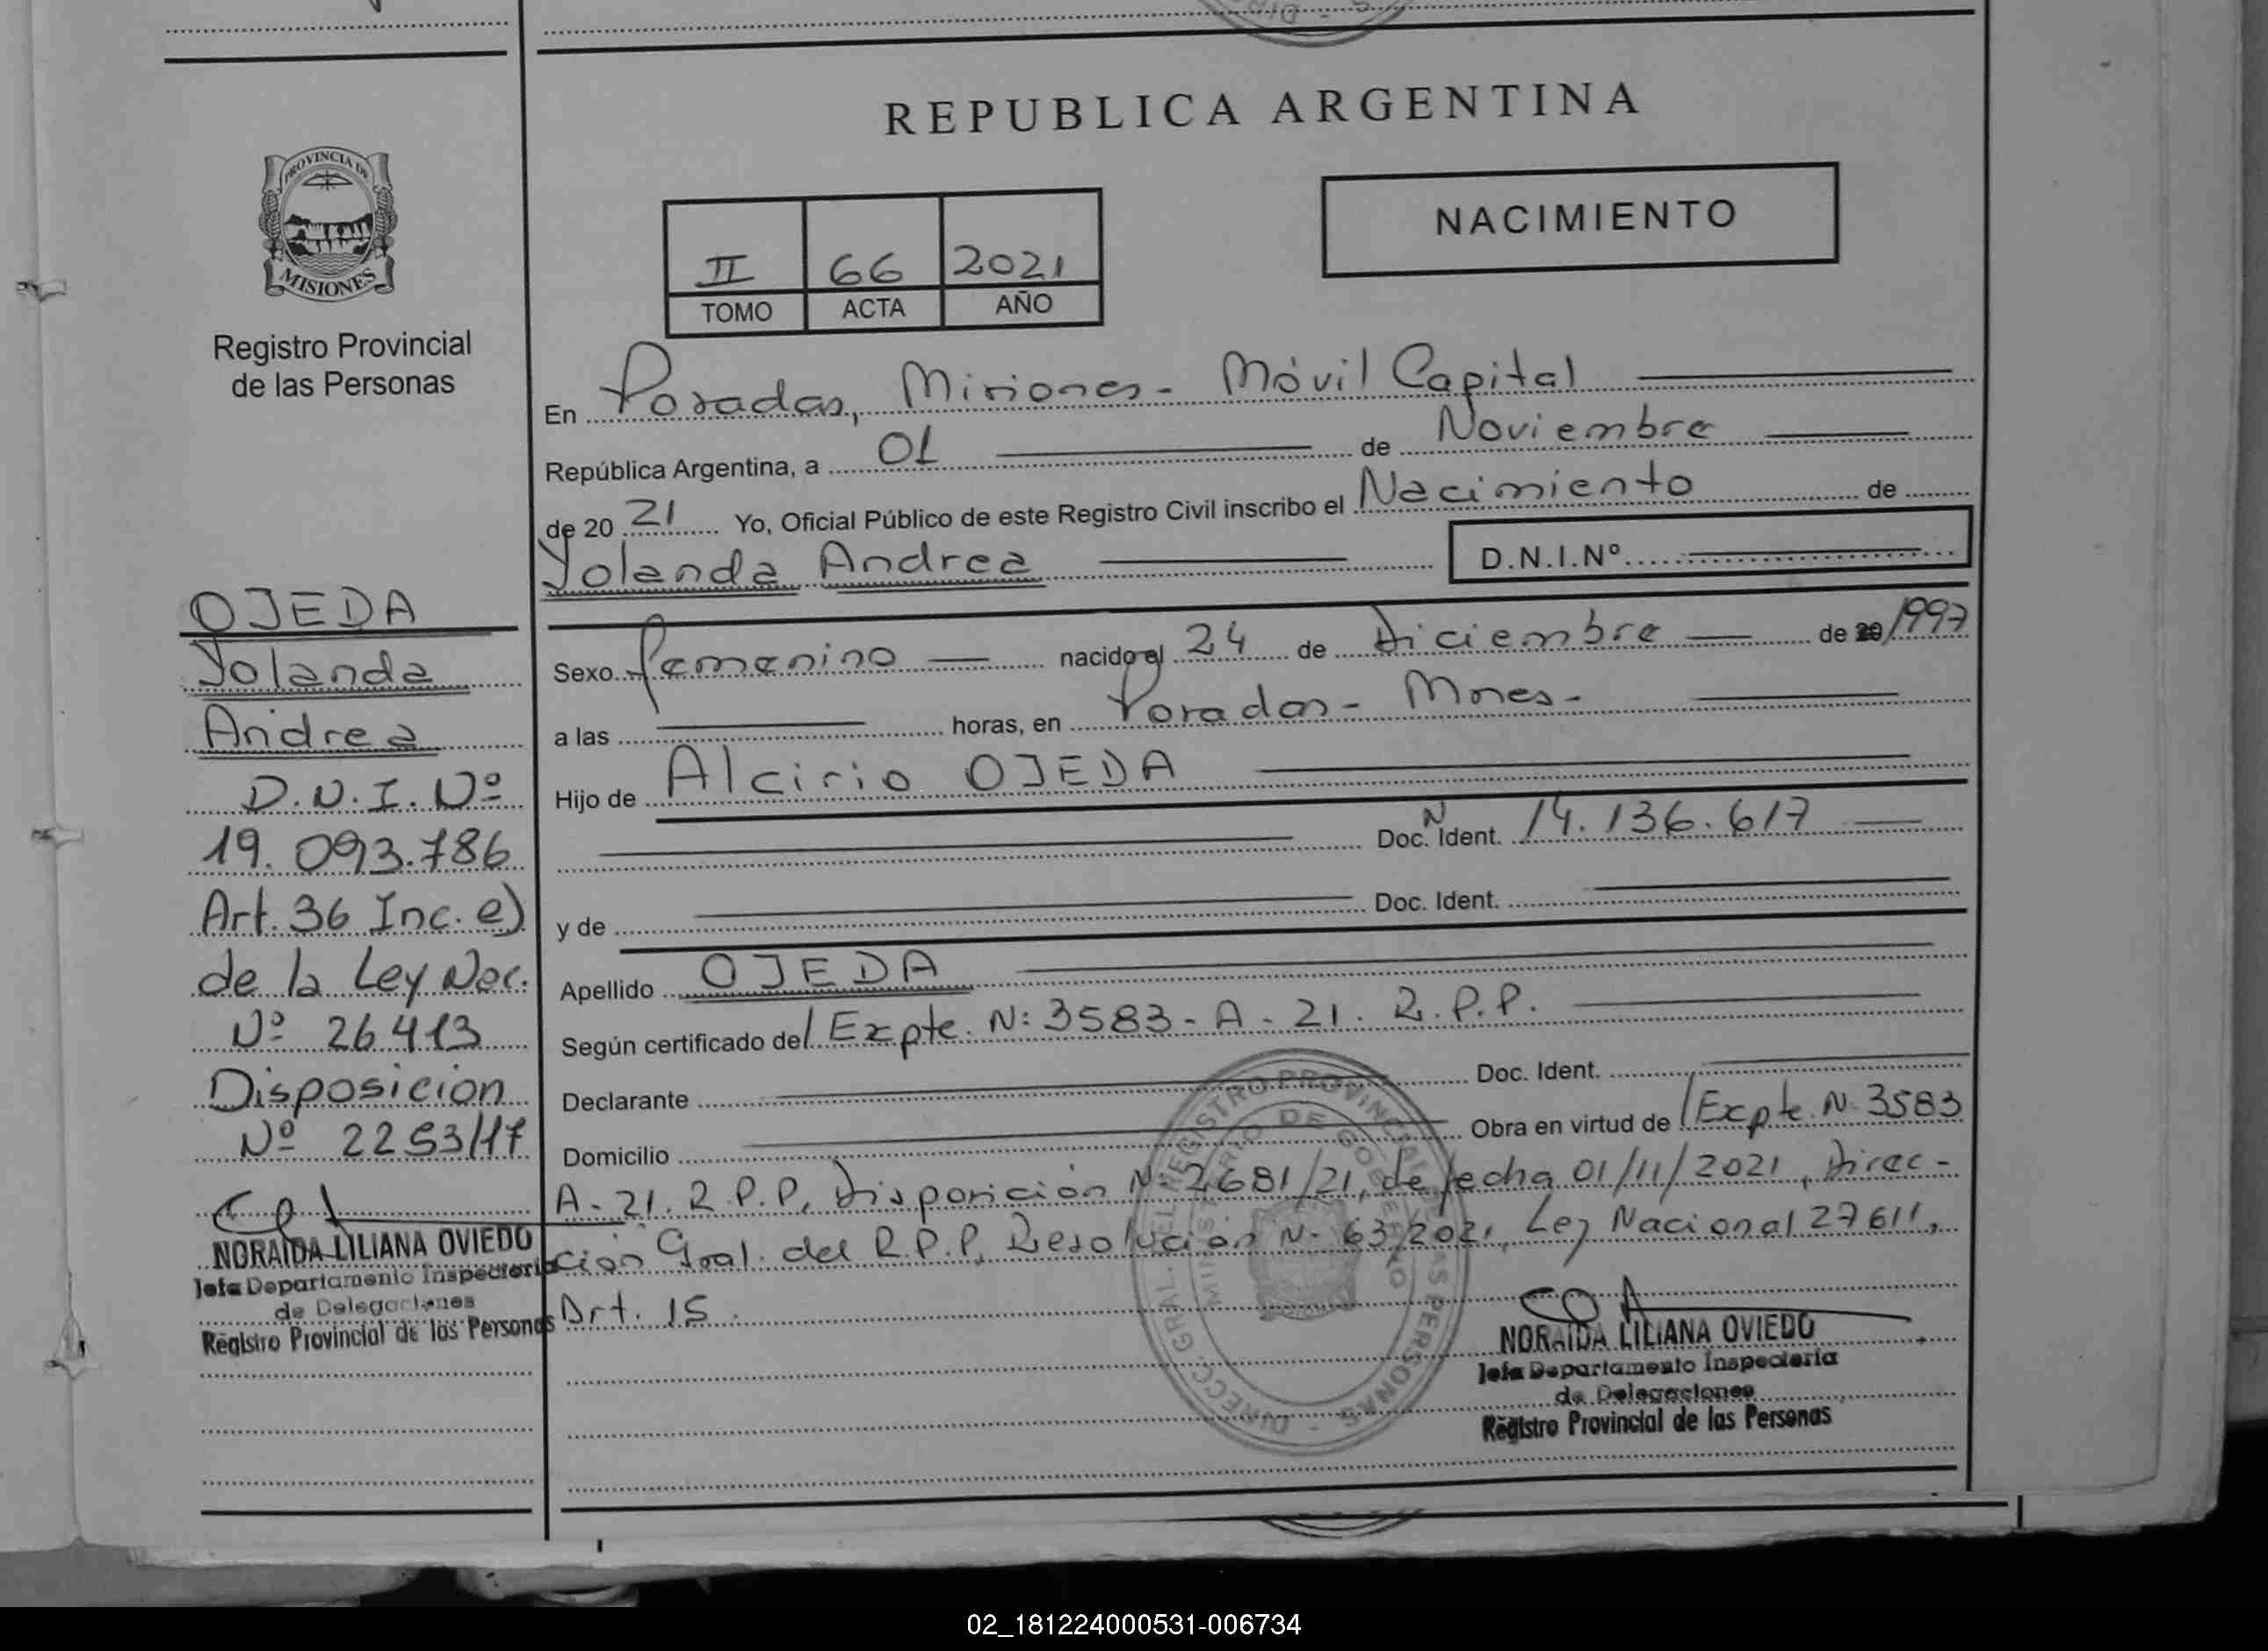 REPUBLICA ARGENTINA
NACIMIENTO
PROVINCIA DE
MISIONES
Registro Provincial
de las Personas
II 66 2021
TOMO ACTA AÑO
En Posadas, Misiones - Móvil Capital
República Argentina, a 01 de Noviembre
de 20 21 Yo, Oficial Público de este Registro Civil inscribo el Nacimiento de
Yolanda Andrea D.N.I.Nº
Sexo femenino nacido el 24 de Diciembre de 20/1997
a las horas, en Posadas - Mnes -
Hijo de Alcirio OJEDA
Doc. N Ident. 14.136.617
y de Doc. Ident.
Apellido OJEDA
Según certificado del Expte. N: 3583 - A - 21. R.P.P.
Declarante Doc. Ident.
Domicilio Obra en virtud de l Expte. N 3583
A - 21. R.P.P, Disposición N: 2681/21, de fecha 01/11/2021, Direc-
ción Gral. del R.P.P, Resolución N- 63/2021, Ley Nacional 27611,
Art. 15.
NORAIDA LILIANA OVIEDO
Jefa Departamento Inspectoría
de Delegaciones
Registro Provincial de las Personas
OJEDA
Yolanda
Andrea
D.N.I. Nº
19.093.786
Art. 36 Inc. e)
de la Ley Nac.
Nº 26413
Disposicion
Nº 2253/17
NORAIDA LILIANA OVIEDO
Jefa Departamento Inspectoría
de Delegaciones
Registro Provincial de las Personas
DIRECC. GRAL. DEL REGISTRO PROVINCIAL DE LAS PERSONAS
MINISTERIO DE GOBIERNO
02_181224000531-006734